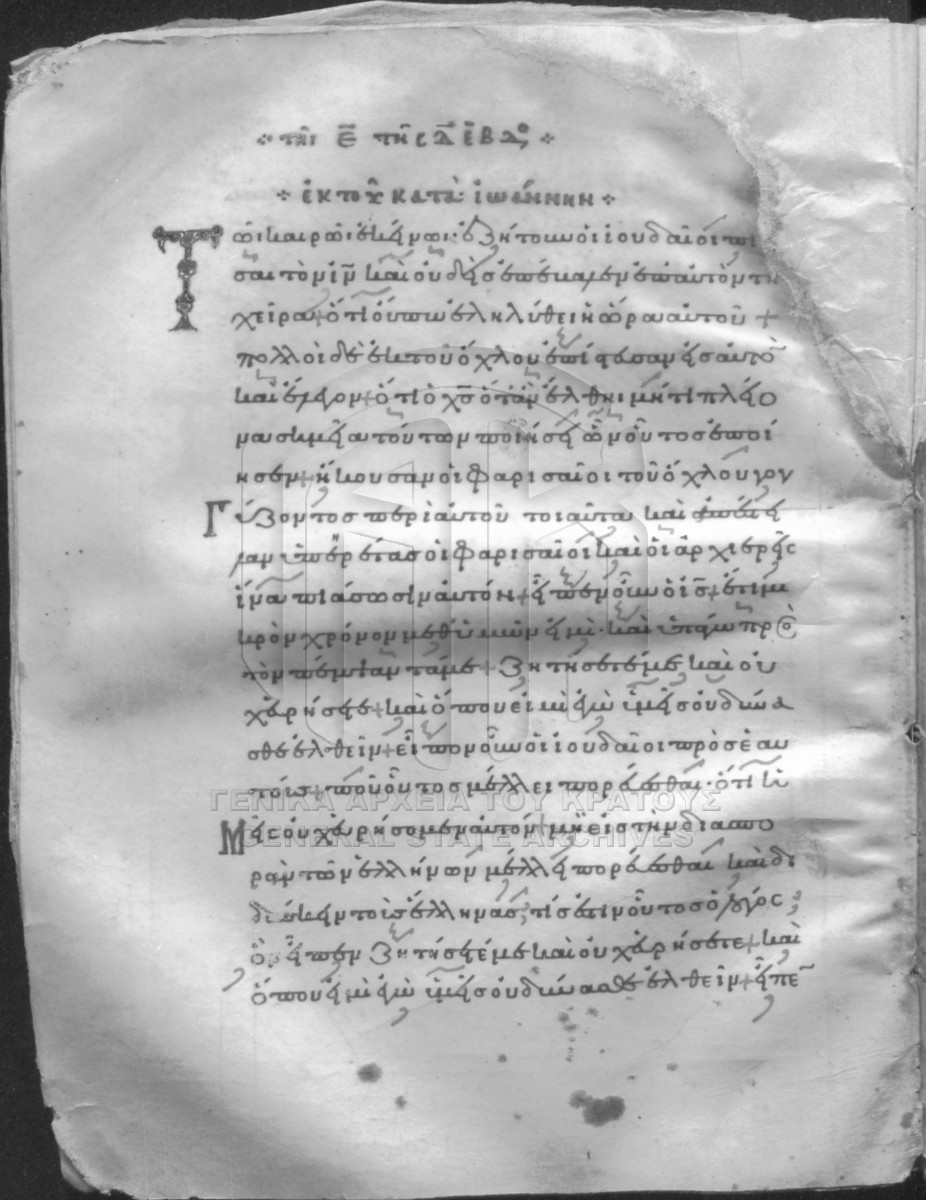 τῆι ε̄ τῆς δ̄ ἑβδ
ἐκ τοῦ κατὰ ἰωάννην
Τῶι καιρῶι ἐκείνωι· ἐζήτουν οἱ ἰουδαῖοι πιά
σαι τὸν ιν̄ καὶ οὐδεὶς ἐπέβαλεν ἐπ αὐτὸν τὴν
χεῖρα + ὅτι οὔπω ἐληλύθει ἡ ὥρα αὐτοῦ +
πολλοὶ δὲ ἐκ τοῦ ὄχλου ἐπίστευσαν εἰς αὐτὸ
καὶ ἔλεγον + ὅτι ὁ χς̄ ὅταν ἔλθηι μήτι πλείο
να σημεῖα τούτων ποιήσει ὧν οὗτος ἐποί
ησεν + ἤκουσαν οἱ φαρισαῖοι τοῦ ὄχλου γογ
γύζοντος περὶ αὐτοῦ ταῦτα καὶ ἀπέστει
λαν ὑπηρέτας οἱ φαρισαῖοι καὶ οἱ ἀρχιερεῖς
ἵνα πιάσωσιν αὐτόν + εἶπεν οὖν ὁ ις̄ + ἔτι μι
κρὸν χρόνον μεθ ὑμῶν εἰμὶ· καὶ ὑπάγω πρὸς
τὸν πέμψαντά με + ζητήσετέ με καὶ οὐ
χ εὑρήσετε + καὶ ὅπου εἰμὶ ἐγὼ ὑμεῖς οὐ δύνα
σθε ἐλθεῖν + εἶπον οὖν οἱ ἰουδαῖοι πρὸς ἑαυ
τούς + ποῦ οὗτος μέλλει πορεύεσθαι· ὅτι ἡ
μεῖς οὐχ εὑρήσομεν αὐτόν + μὴ εἰς τὴν διασπο
ρὰν τῶν ἑλλήνων μέλλει πορεύεσθαι καὶ δι
δάσκειν τοὺς ἕλληνας; τίς ἐστιν οὗτος ὁ λόγος
ὃν εἶπεν ζητήσετέ με καὶ οὐχ εὑρήσετε + καὶ
ὅπου εἰμὶ ἐγὼ ὑμεῖς οὐ δύνασθε ἐλθεῖν + εἶπε
ΓΕΝΙΚΑ ΑΡΧΕΙΑ ΤΟΥ ΚΡΑΤΟΥΣ
GENERAL STATE ARCHIVES